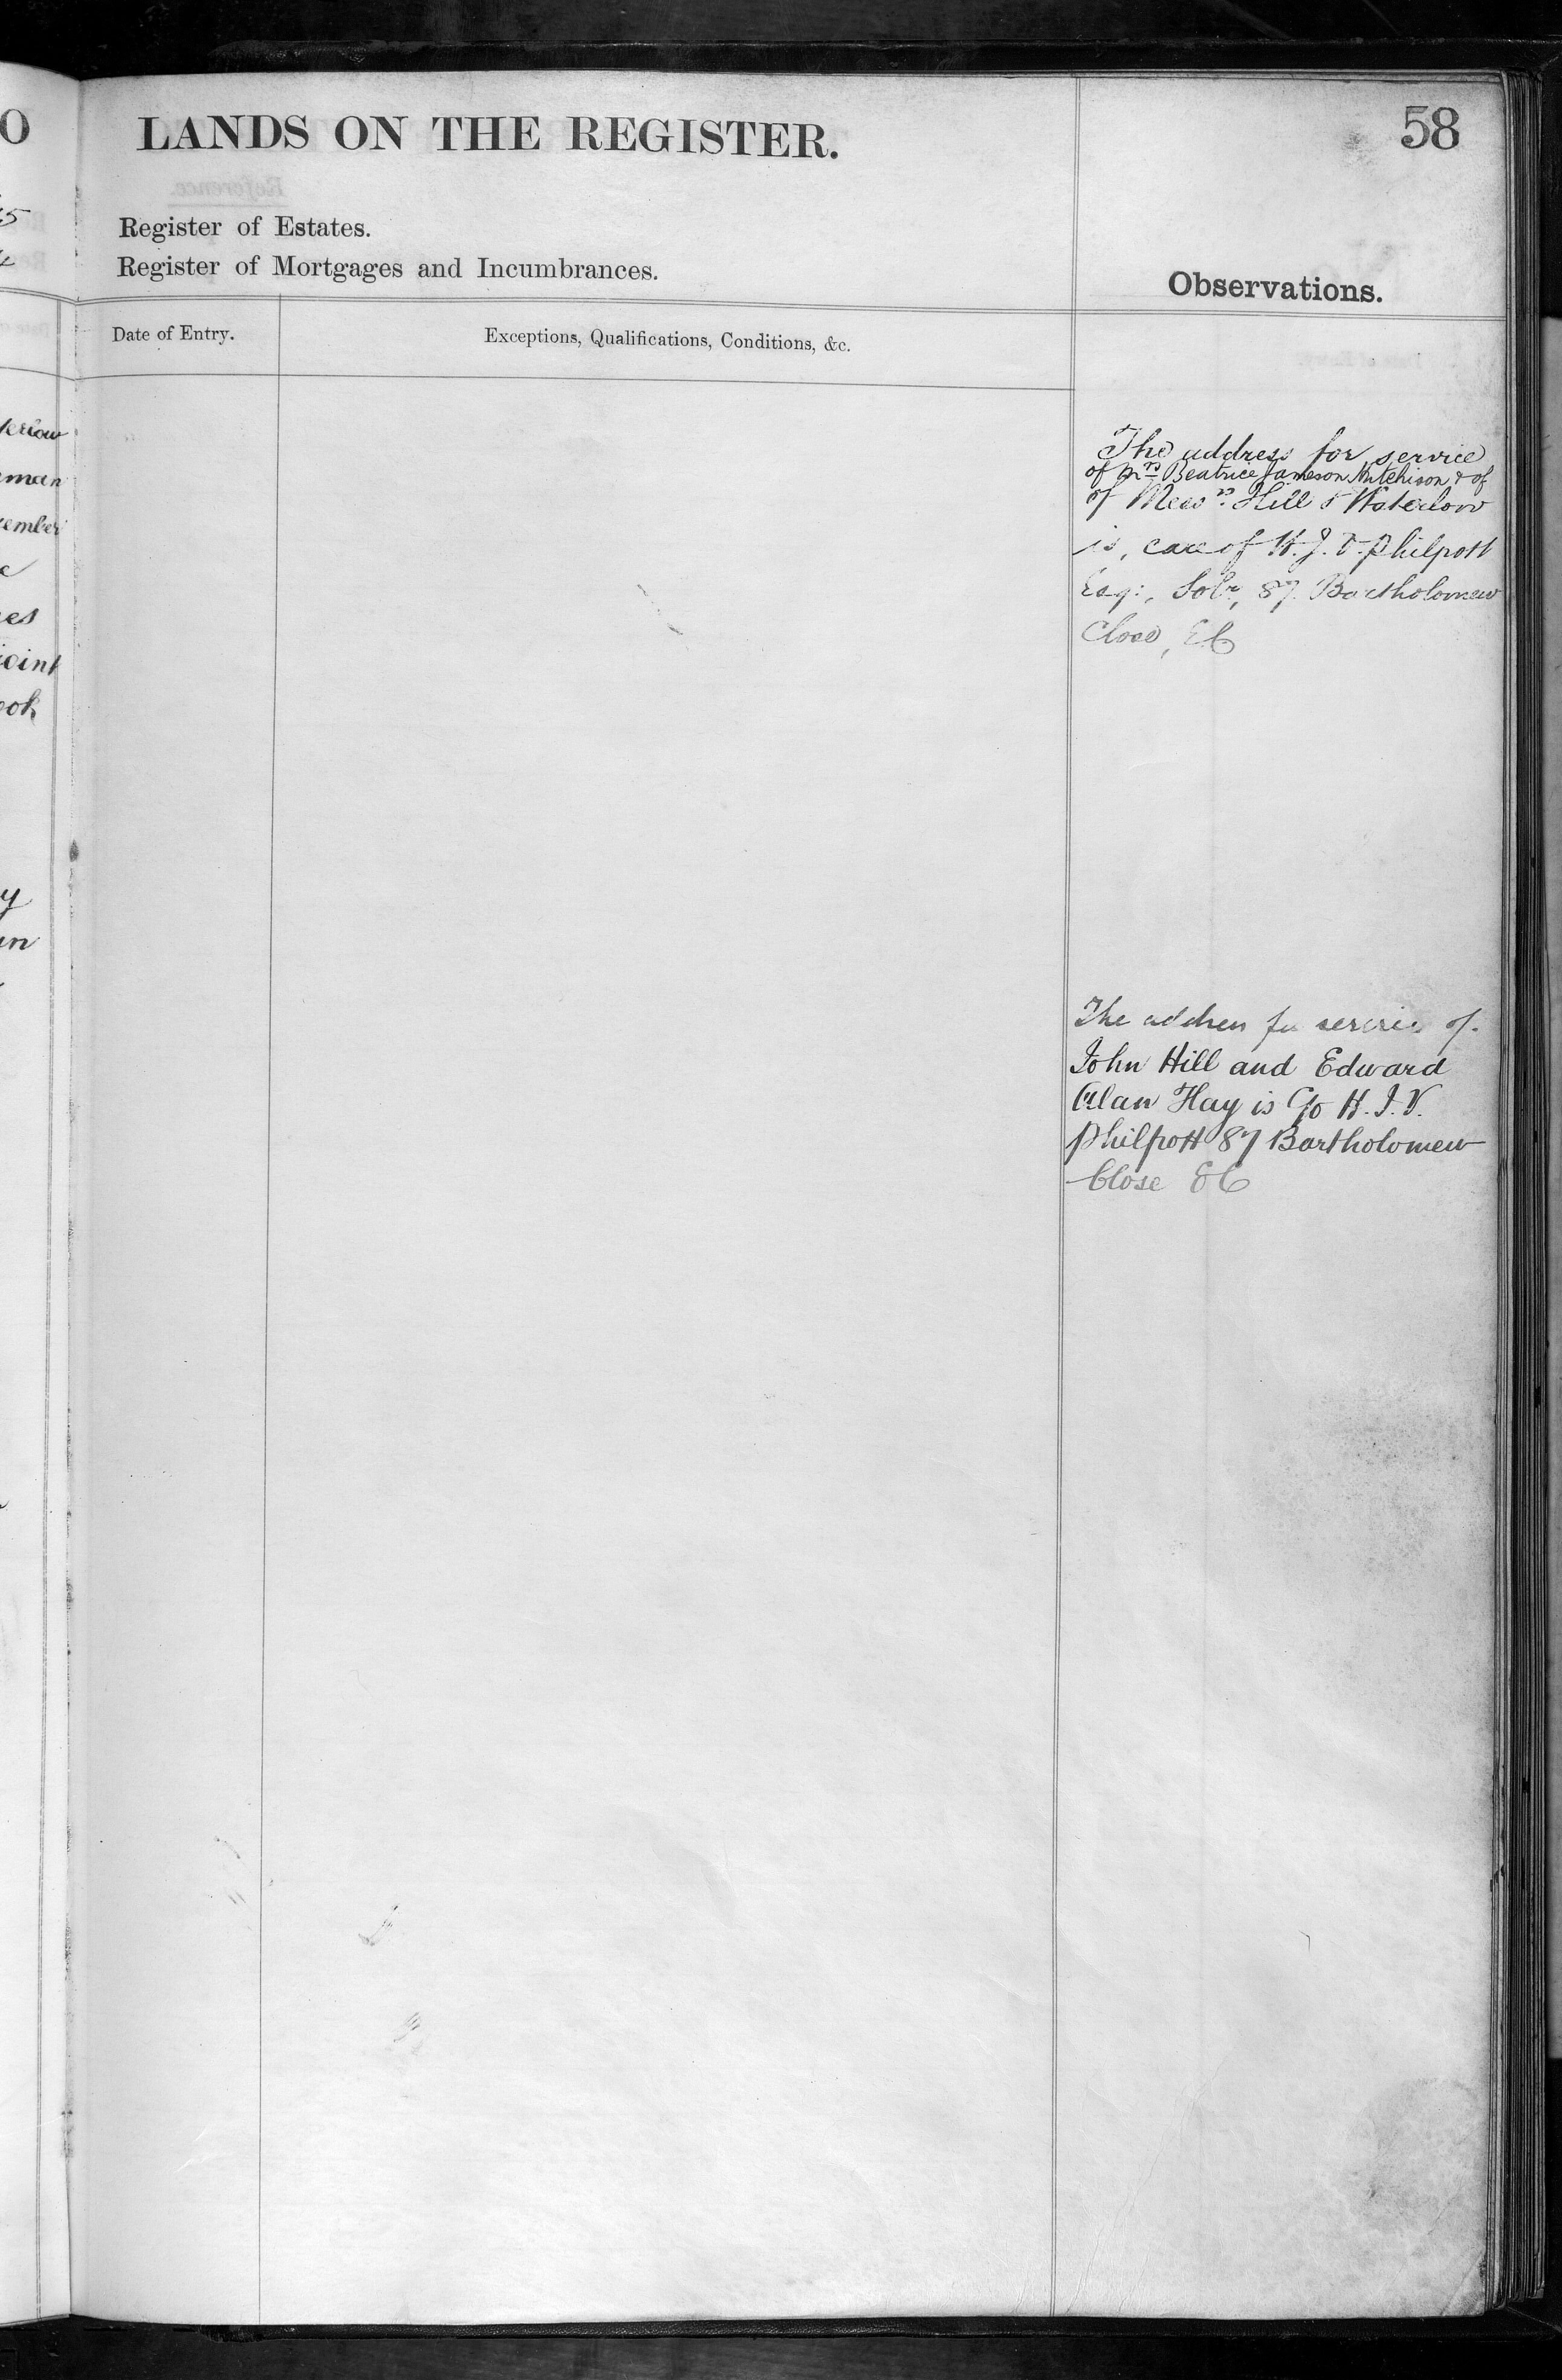 LANDS ON THE REGISTER.
58
Register of Estates.
Register of Mortgages and Incumbrances.
Observations.
Date of Entry.
Exceptions, Qualifications, Conditions, &c.
The address for service
of Mrs Beatrice Jameson Hutchison & of
of Messrs Hill & Waterlow
is, care of H. J. V. Philpott
Esq:, Solr, 87. Bartholomew
Close, EC
The address for service of
John Hill and Edward
Alan Hay is C/o H. J. V.
Philpott 87 Bartholomew
Close EC